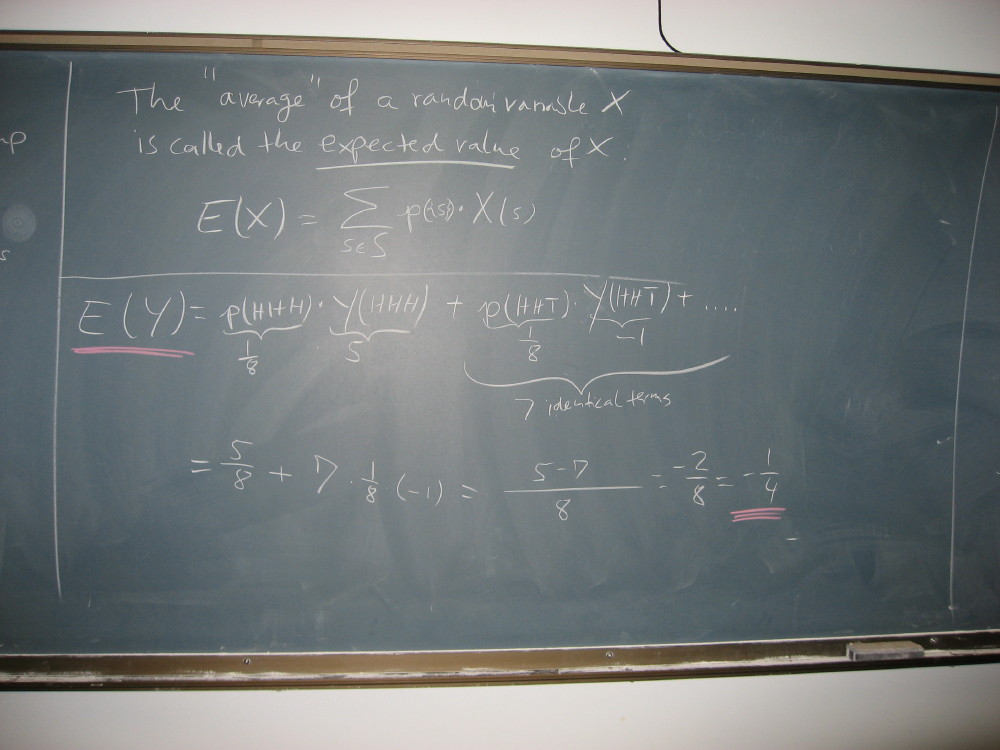 The "average" of a random variable X
is called the expected value of X.
E(X) = ∑ p({s}) · X(s)
s∈S
E(Y) = p(HHH) · Y(HHH) + p(HHT) · Y(HHT) + ....
1/8 5 1/8 -1
7 identical terms
= 5/8 + 7 · 1/8 (-1) = 5-7/8 = -2/8 = -1/4